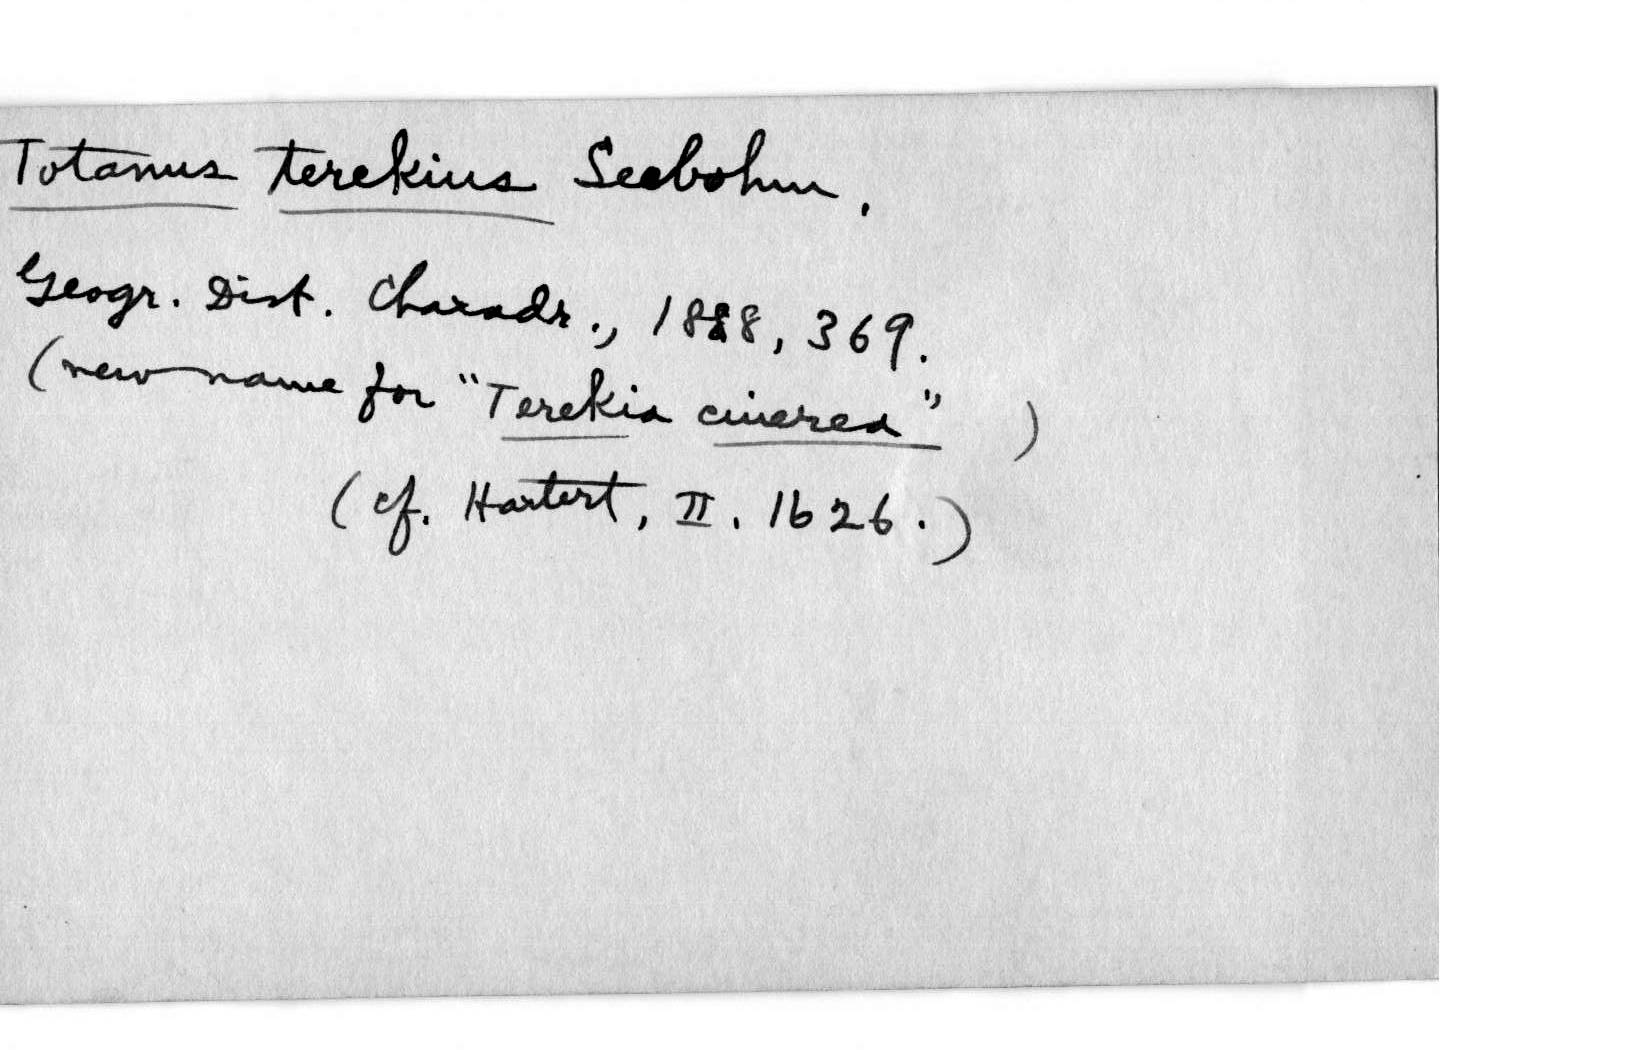 Totanus terekius Seebohm.
Geogr. Dist. Charadr., 1888, 369.
(new name for "Terekia cinerea" )
(cf. Hartert, II. 1626.)